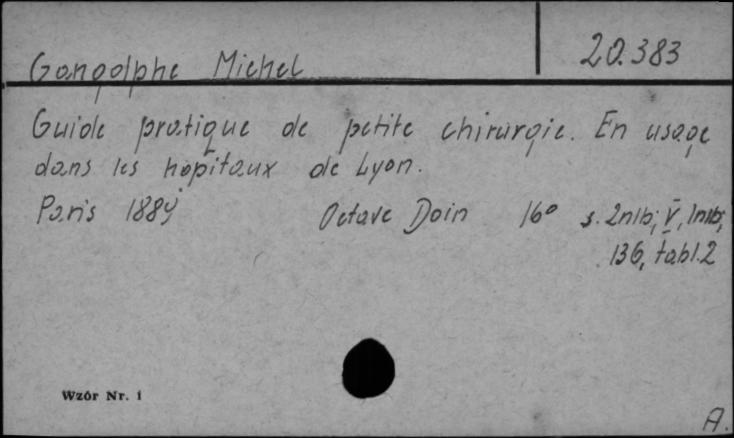 Gangolphe Michel 20.383
Guide pratique de petite chirurgie. En usage
dans les hôpitaux de Lyon.
Paris 1889 Octave Doin 16° s. 2nlb; V, 1nlb;
136, tabl. 2
Wzór Nr. 1
A.